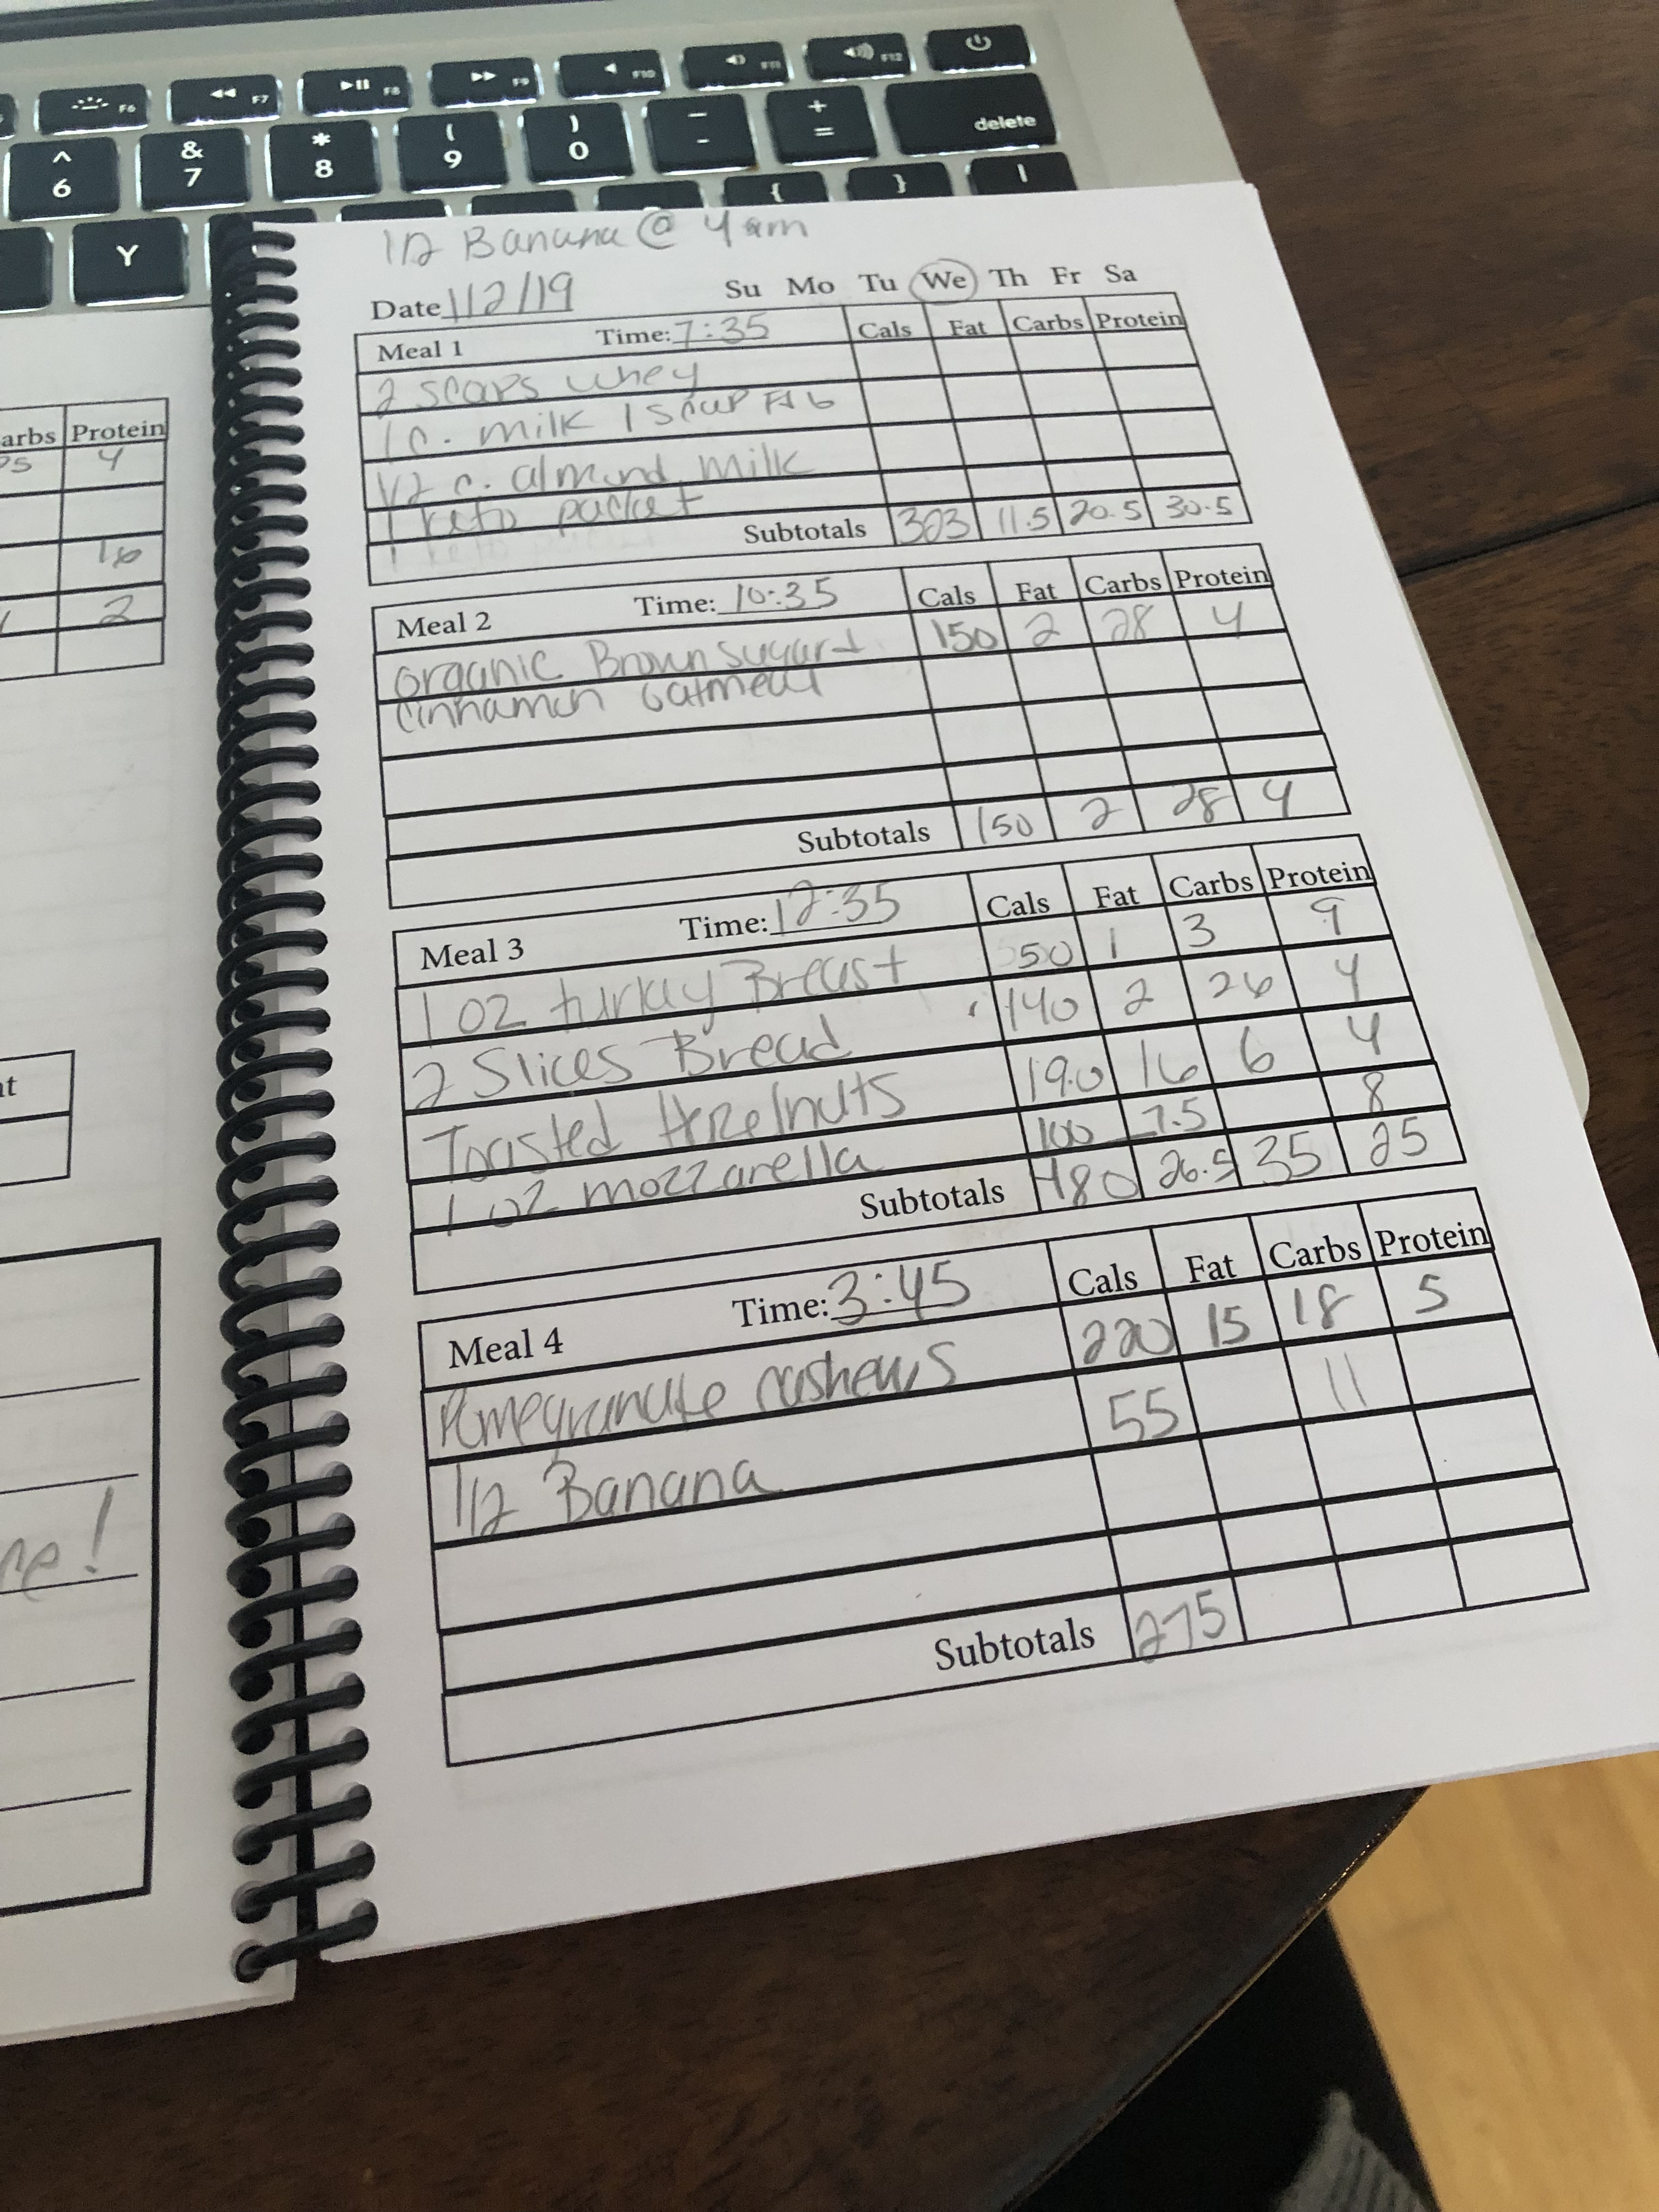 F6 F7 F8 F9 F10 F11 F12
^ & * ( ) — + delete
6 7 8 9 0 - =
{ } |
Y
1/2 Banana @ 4am
Date 1/2/19 Su Mo Tu We Th Fr Sa
Meal 1 Time: 7:35 Cals Fat Carbs Protein
2 scoops whey
1 c. milk 1 scoup
1/2 c. almond milk
1 keto packet
Subtotals 303 11.5 20.5 30.5
Meal 2 Time: 10:35 Cals Fat Carbs Protein
organic Brown sugar + 150 2 28 4
cinnamon oatmeal
Subtotals 150 2 28 4
Meal 3 Time: 12:35 Cals Fat Carbs Protein
1 oz turkay Breast 50 1 3 9
2 Slices Bread 140 2 26 4
Toasted Hazelnuts 190 16 6 4
1 oz mozzarella 100 7.5 8
Subtotals 480 26.5 35 25
Meal 4 Time: 3:45 Cals Fat Carbs Protein
Pomegranate cashews 220 15 18 5
1/2 Banana 55 11
Subtotals 275
arbs Protein
4
16
2